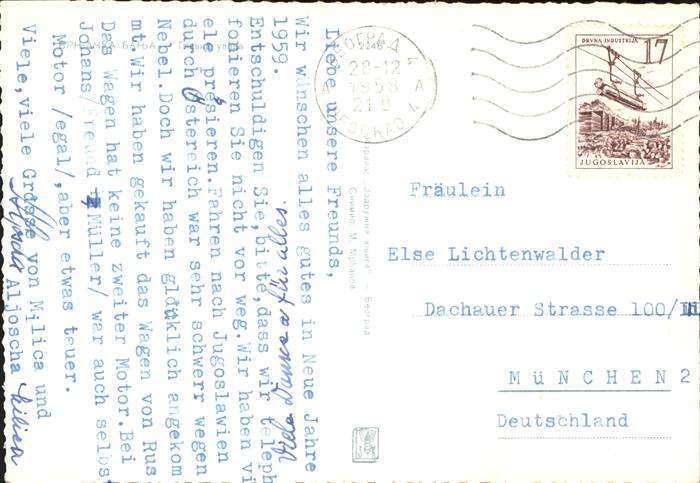 Liebe unsere Freunds,
Wir wünschen alles gutes in Neue Jahre
1959.
Entschuldigen Sie,bitte,dass wir teleph
fonieren Sie nicht vor weg.Wir haben vi
ele präsieren.Fahren nach Jugoslawien
durch Östereich war sehr schwerr wegen
Nebel.Doch wir haben glüklich angekom
mt. Wir haben gekauft das Wagen von Rus
Das Wagen hat keine zweiter Motor.Bei
Johans/Freund Müller/ war auch selbst
Motor /egal/,aber etwas teuer.
Viele,viele Grösse von Milica und
Aljoscha
Viele für alles.
Milica
BEOGRAD
29-12
1958
BEOGRAD 4
DRVNA INDUSTRIJA
17
JUGOSLAVIJA
Fräulein
Else Lichtenwalder
Dachauer Strasse 100/
MÜNCHEN 2
Deutschland